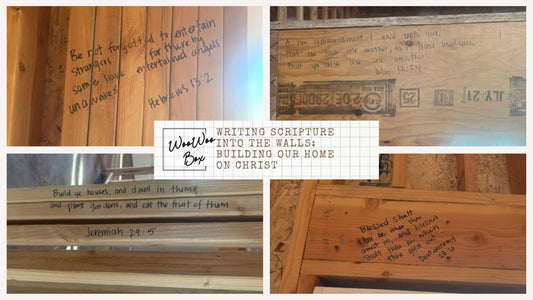 Be not forgetful to entertain
strangers for there by
some have entertained angels
unawares
Hebrews 13:2
A new commandment I give unto you,
that ye love one another; as I have loved you,
that ye also love one another
John 13:34
2.0E 2900F
25
8
JLY 21
WooWoo
Box
WRITING SCRIPTURE
INTO THE WALLS:
BUILDING OUR HOME
ON CHRIST
Build ye houses, and dwell in them;
and plant gardens, and eat the fruit of them
Jeremiah 29:5
Blessed shalt
thou be when thou
comest in, and blessed
shalt thou be when
thou goest out.
Deuteronomy
28:6